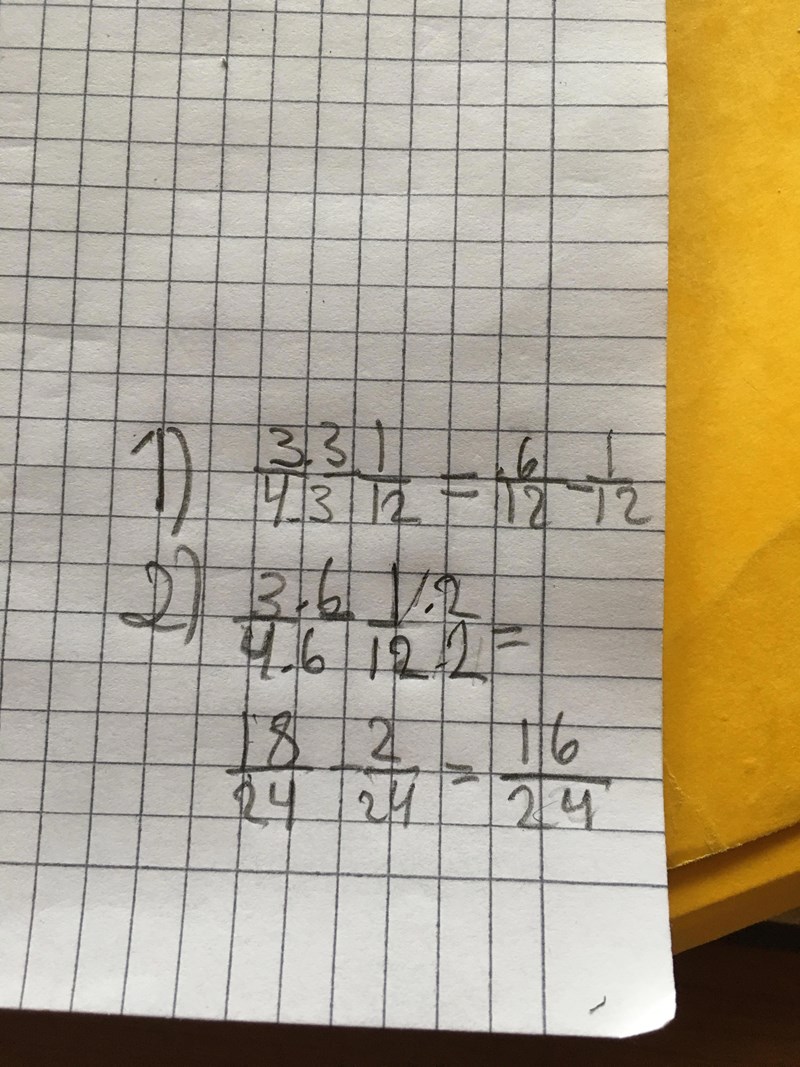 1) 3·3/4·3 - 1/12 = 6/12 - 1/12
2) 3·6/4·6 - 1·2/12·2 =
18/24 - 2/24 = 16/24